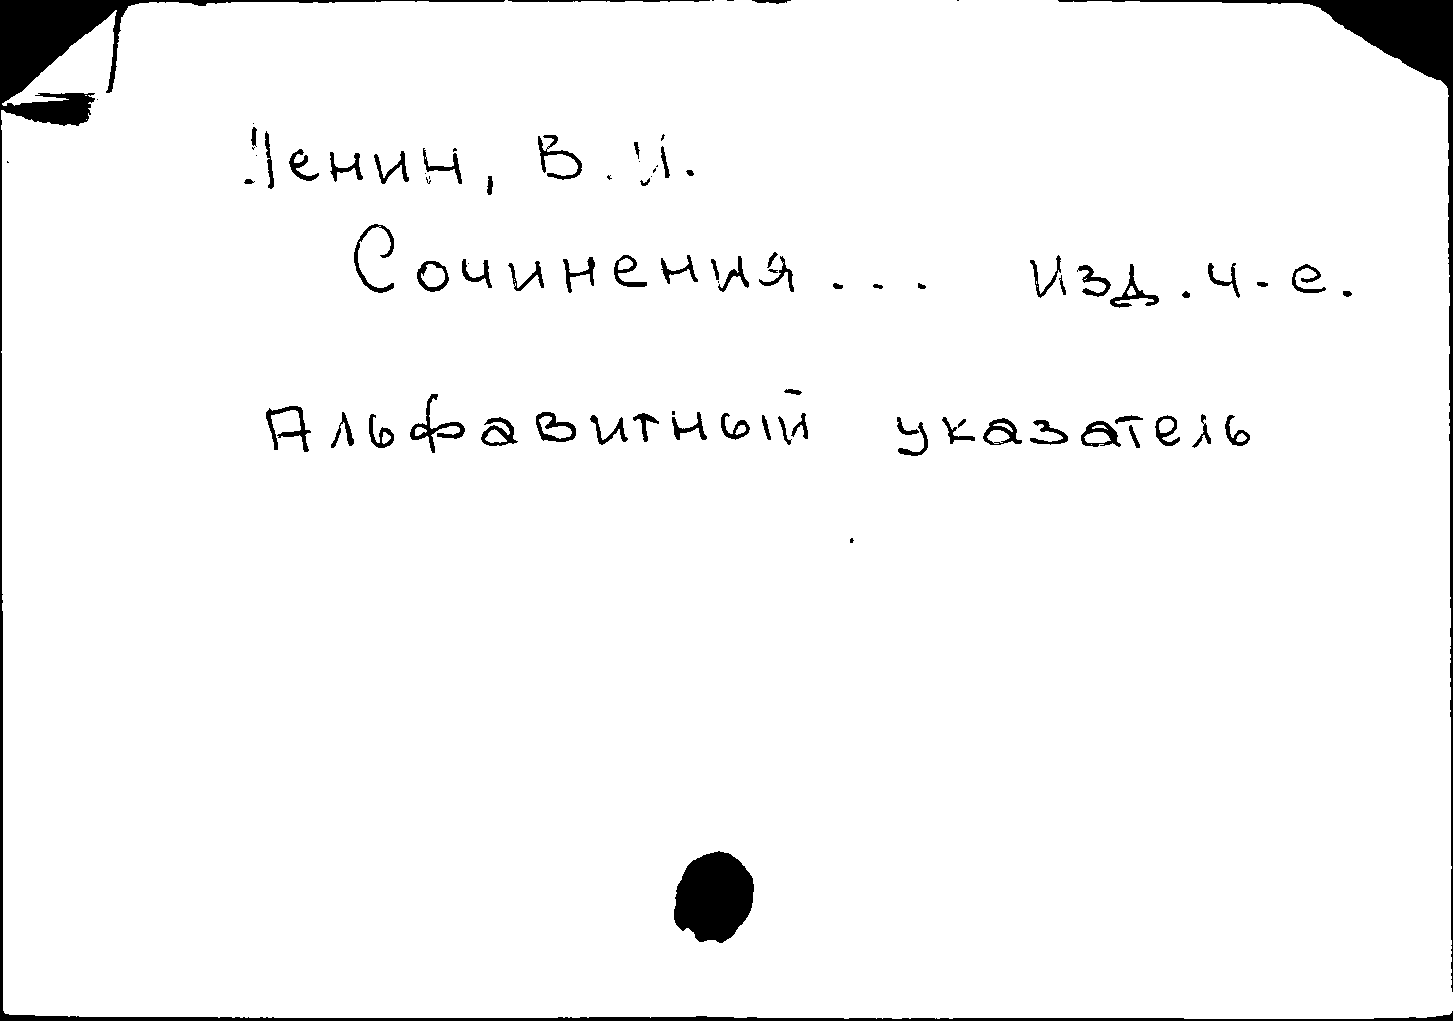 Ленин, В.И.
Сочинения... изд. 4-е.
Алфавитный указатель